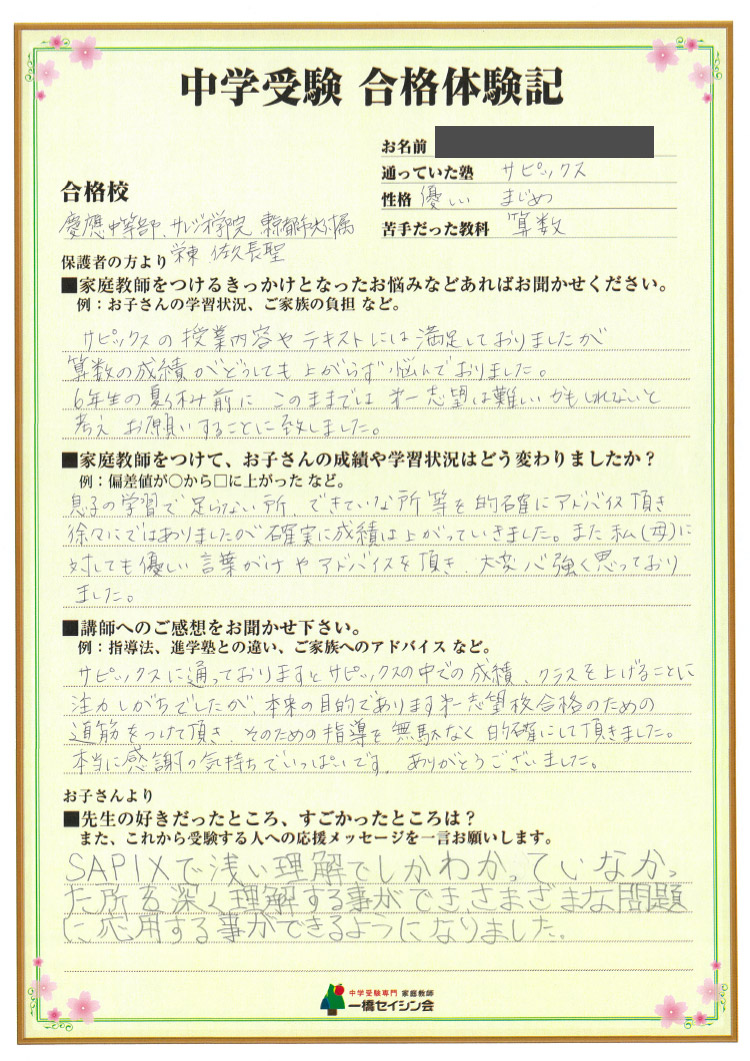 中学受験 合格体験記
お名前
通っていた塾 サピックス
性格 優しい まじめ
苦手だった教科 算数
合格校
慶應中等部、サレジオ学院 東京都市大附属
栄東 佐久長聖
保護者の方より
■家庭教師をつけるきっかけとなったお悩みなどあればお聞かせください。
例：お子さんの学習状況、ご家族の負担 など。
サピックスの授業内容やテキストには満足しておりましたが
算数の成績がどうしても上がらず悩んでおりました。
6年生の夏休み前に このままでは 第一志望は難しいかもしれないと
考え お願いすることに致しました。
■家庭教師をつけて、お子さんの成績や学習状況はどう変わりましたか？
例：偏差値が○から□に上がった など。
息子の学習で足らない所、できていな所等を的確にアドバイス頂き
徐々にではありましたが確実に成績は上がっていきました。また私(母)に
対しても優しい言葉がけやアドバイスを頂き、大変心強く思っており
ました。
■講師へのご感想をお聞かせ下さい。
例：指導法、進学塾との違い、ご家族へのアドバイス など。
サピックスに通っておりますとサピックスの中での成績、クラスを上げることに
注力しがちでしたが、本来の目的であります第一志望校合格のための
道筋をつけて頂き、そのための指導を無駄なく的確にして頂きました。
本当に感謝の気持ちでいっぱいです。ありがとうございました。
お子さんより
■先生の好きだったところ、すごかったところは？
また、これから受験する人への応援メッセージを一言お願いします。
SAPIXで浅い理解でしかわかっていなかっ
た所を深く理解する事ができさまざまな問題
に応用する事ができるようになりました。
中学受験専門 家庭教師
一橋セイシン会